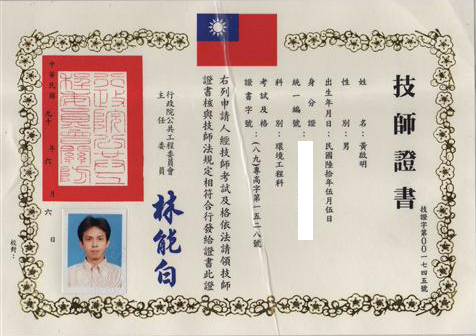 技師證書
技證字第00一七四五號
姓名：黃啟明
性別：男
出生年月日：民國陸拾年伍月伍日
身分證
統一編號：
科別：環境工程科
考試及格
證書字號：(八九)專高字第一五二八號
右列申請人經技師考試及格依法請領技師
證書核與技師法規定相符合行發給證書此證
行政院公共工程委員會
主任委員
林能白
中華民國九十年六月六日
校對：